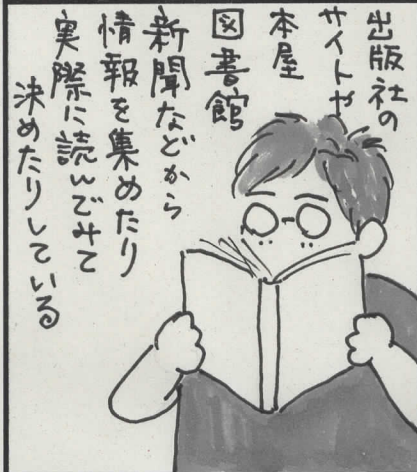 出版社の
サイトや
本屋
図書館
新聞などから
情報を集めたり
実際に読んでみて
決めたりしている